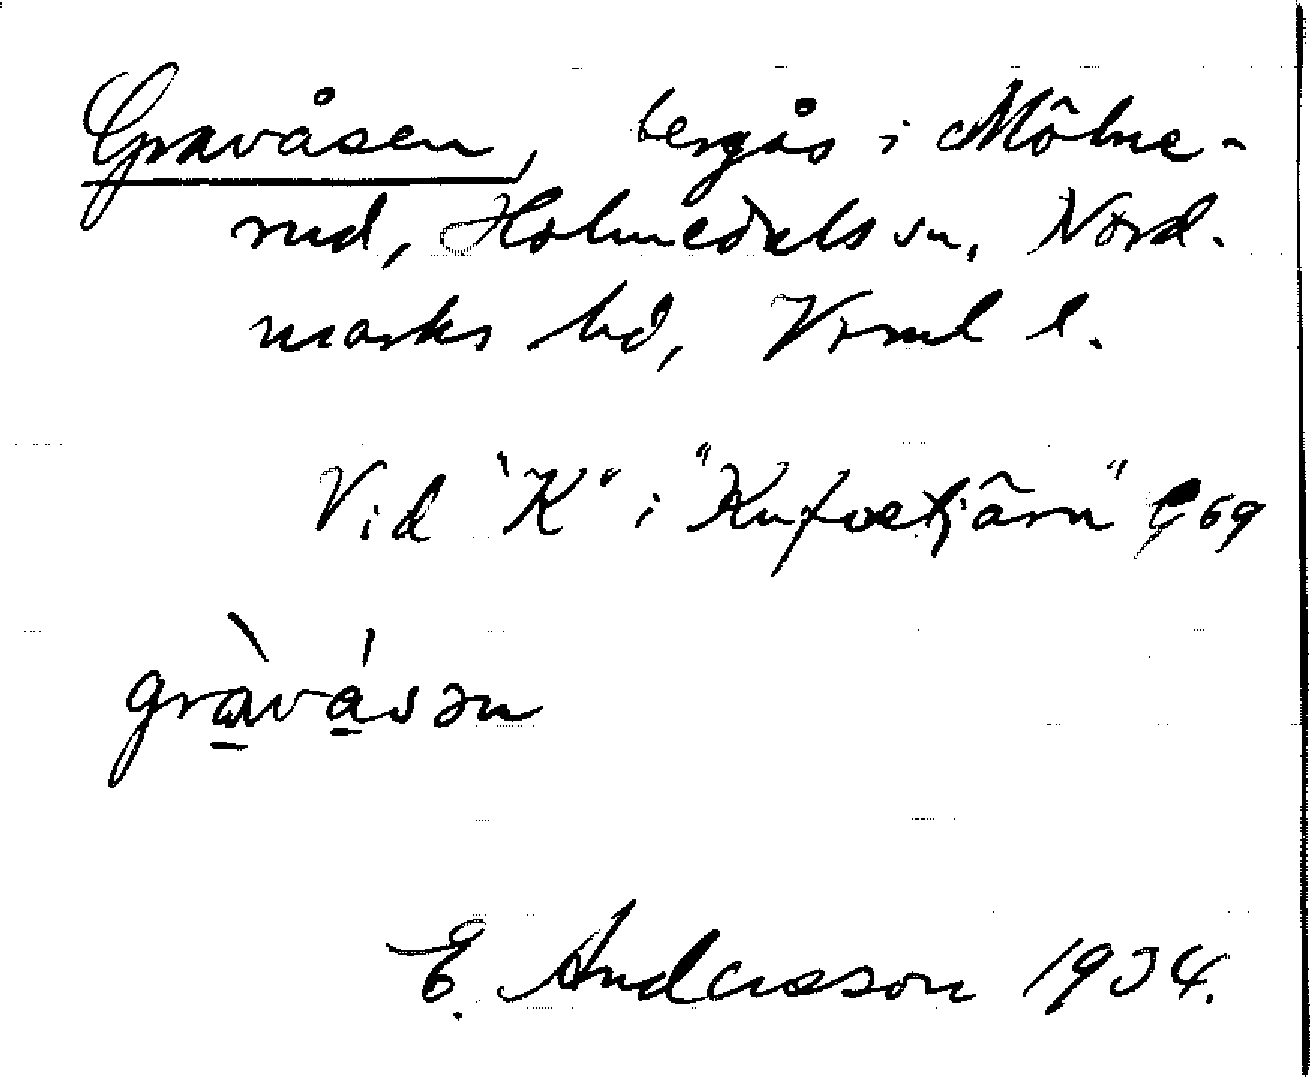 Gravåsen, bergås i Mölne-
rud, Holmedals sn, Nord-
marks hd, Vrml l.
Vid "K" i "Kufoetjärn" E 69
gràvásən
E. Andersson 1934.